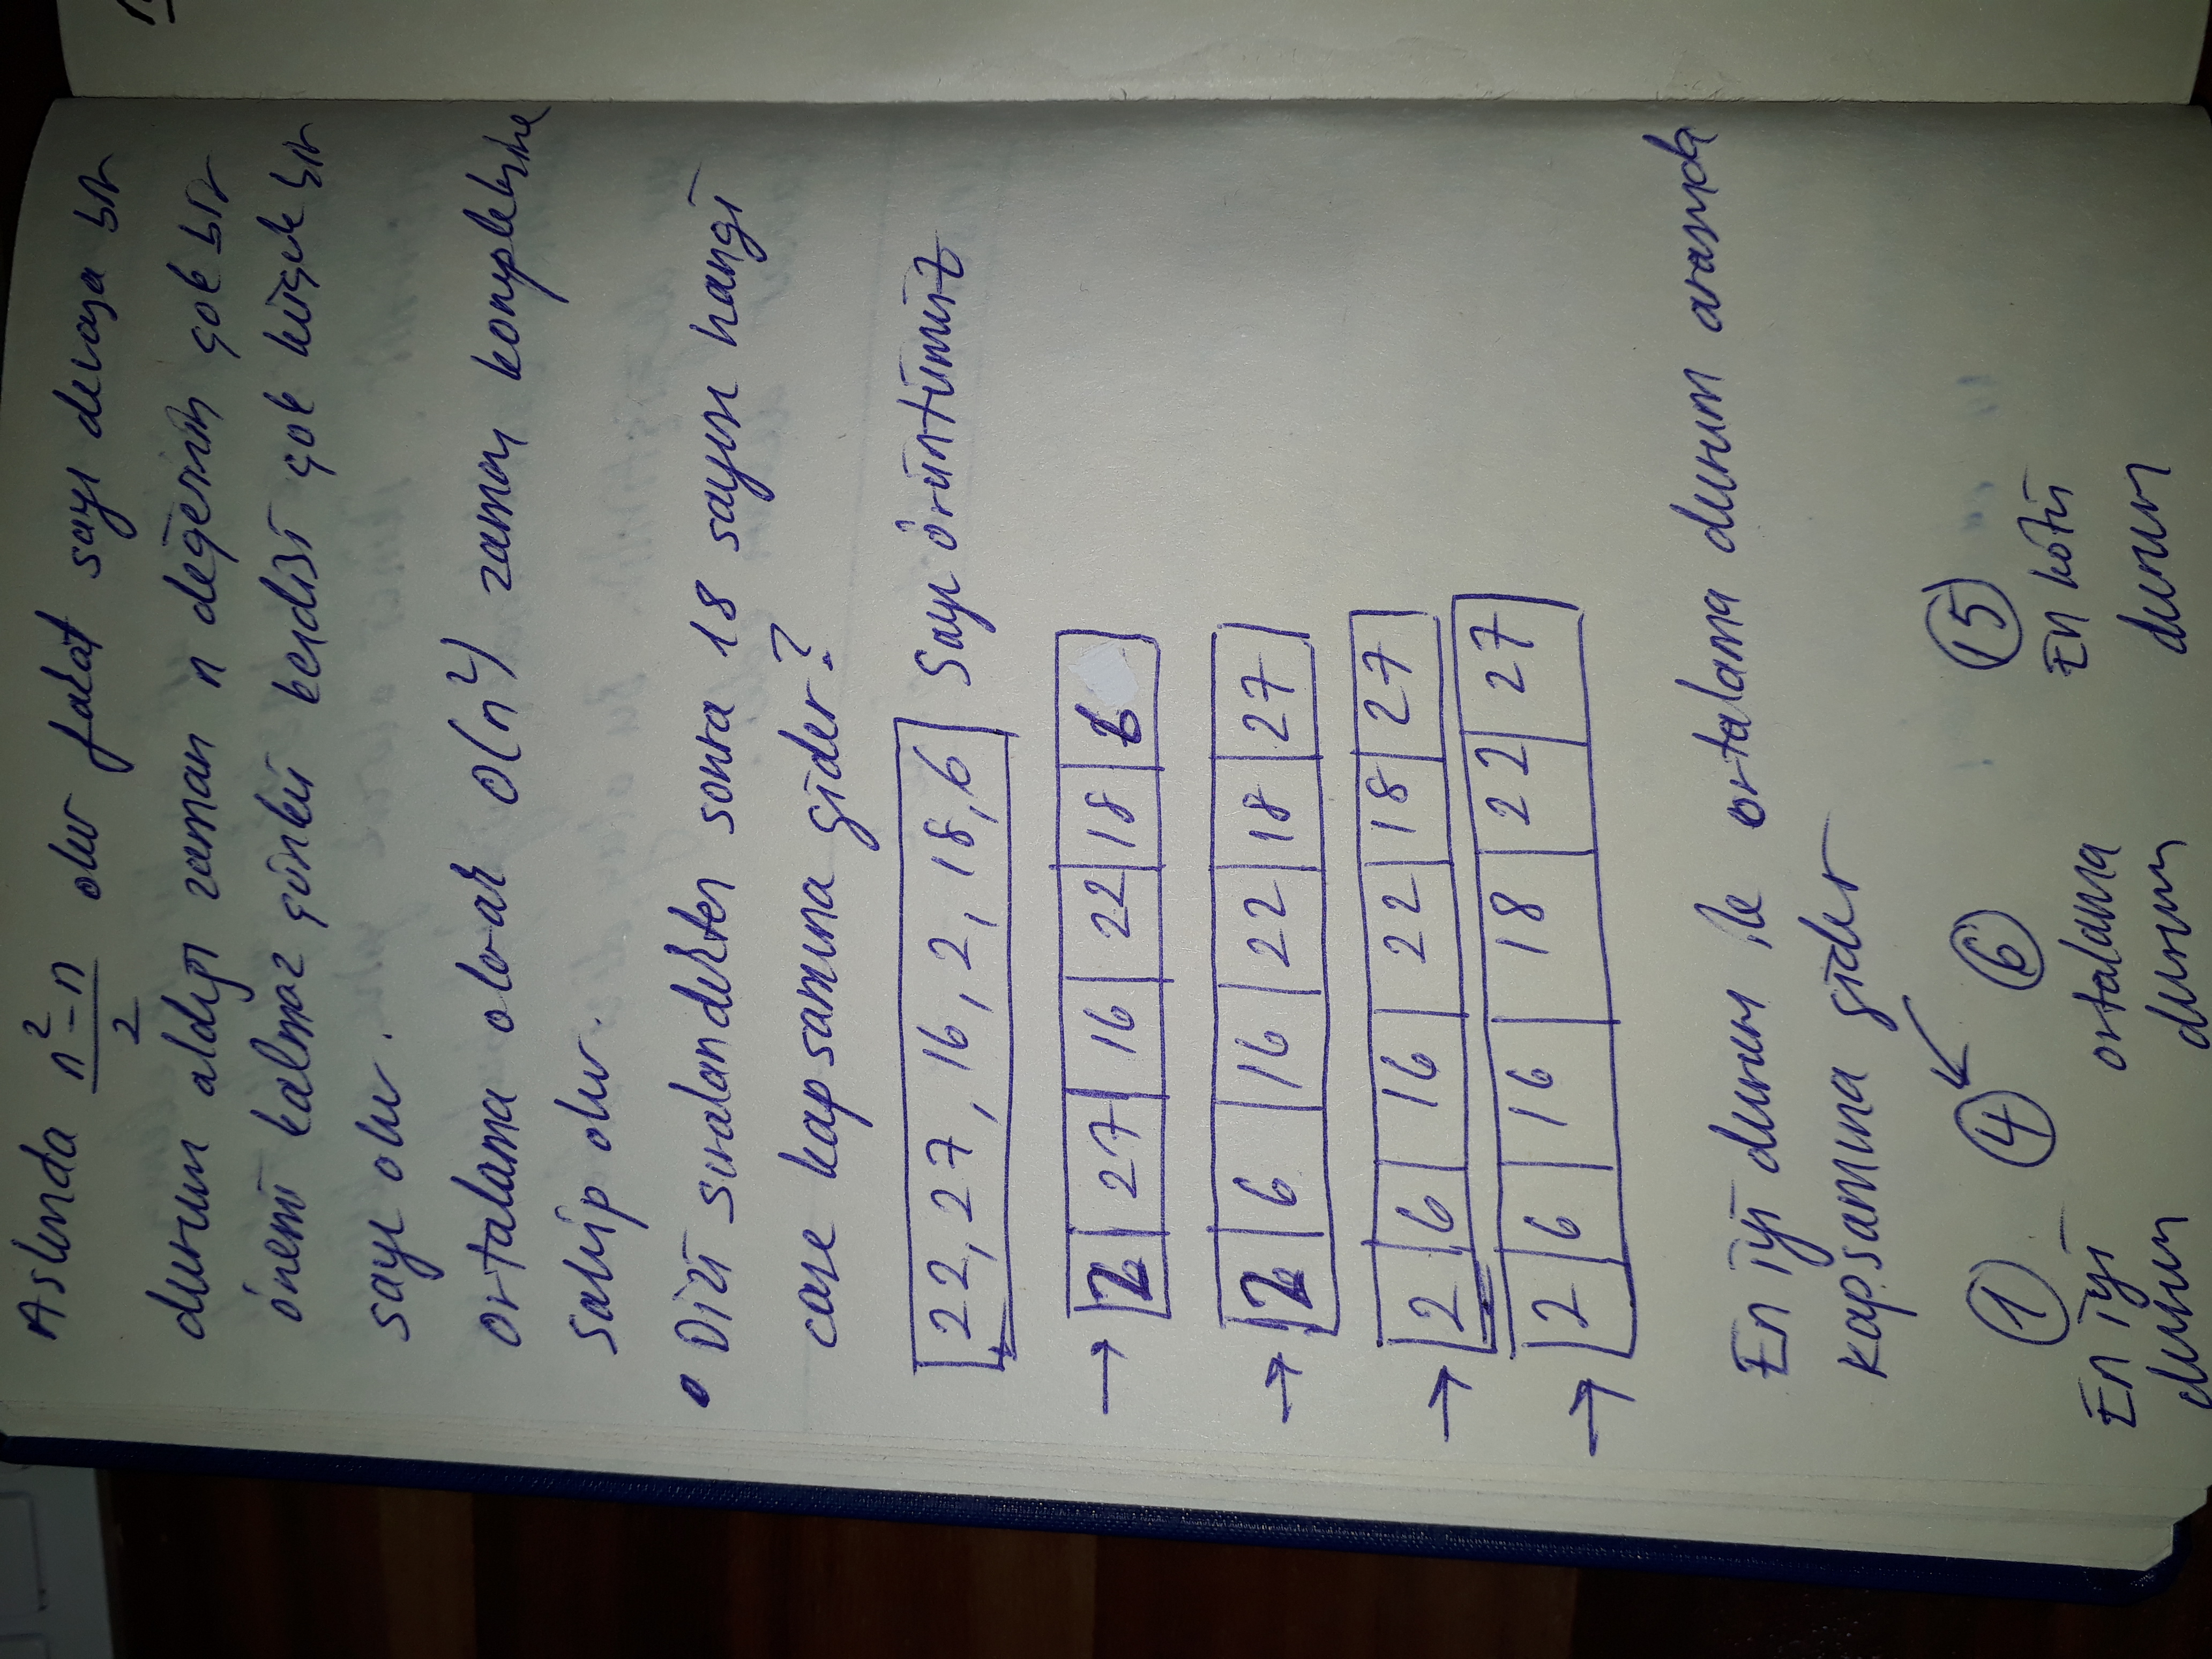 Aslında n²-n / 2 olur fakat sayı devasa bir
durum aldığı zaman n değerinin çok bir
önemi kalmaz çünkü kendisi çok küçük bir
sayı olur.
ortalama olarak O(n²) zaman kompleksine
sahip olur.
• Dizi sıralandıktan sonra 18 sayısı hangi
case kapsamına gider?
22, 27, 16, 2, 18, 6 Sayı örüntümüz
→ 2 27 16 22 18 6
→ 2 6 16 22 18 27
→ 2 6 16 22 18 27
→ 2 6 16 18 22 27
En iyi durum ile ortalama durum arasında
kapsamına gider
1 4 6 15
En iyi durum ortalama durum En kötü durum